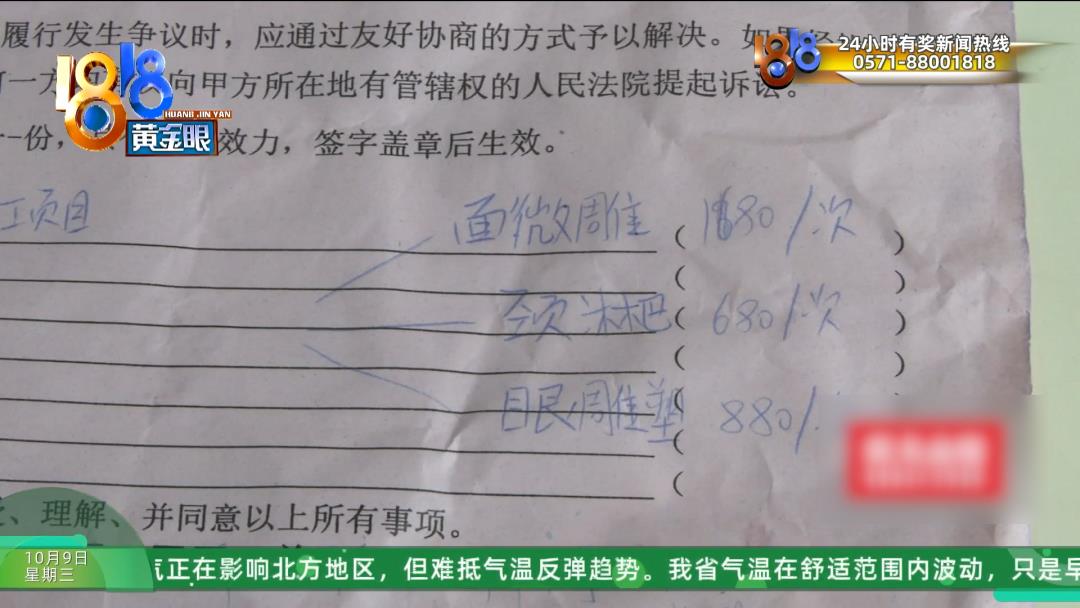 履行发生争议时，应通过友好协商的方式予以解决。如
一方 向甲方所在地有管辖权的人民法院提起诉讼。
一份， 效力，签字盖章后生效。
1818
HUANG JIN YAN
黄金眼
1818
24小时有奖新闻热线
0571-88001818
工项目
面微雕 (1680/次)
颈淋巴 (680/次)
眼周 塑 880/
、理解、并同意以上所有事项。
10月9日
星期三
气正在影响北方地区，但难抵气温反弹趋势。我省气温在舒适范围内波动，只是早